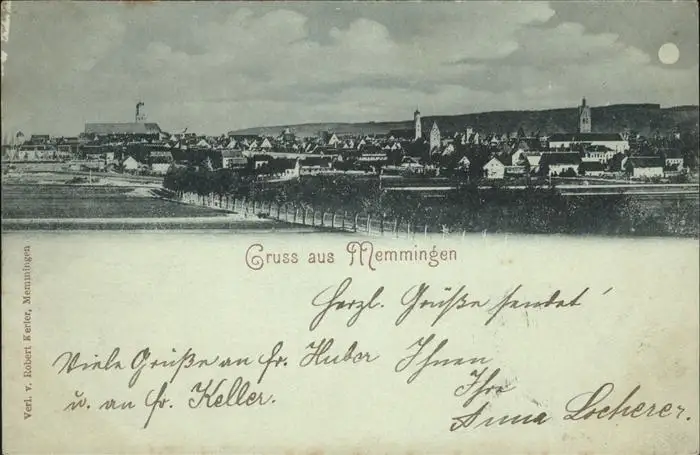 Gruss aus Memmingen
Herzl. Grüße sendet
Ihnen
Ihre
Anna Locherer.
Viele Grüße an fr. Huber
u. an fr. Keller.
Verl. v. Robert Kerler, Memmingen